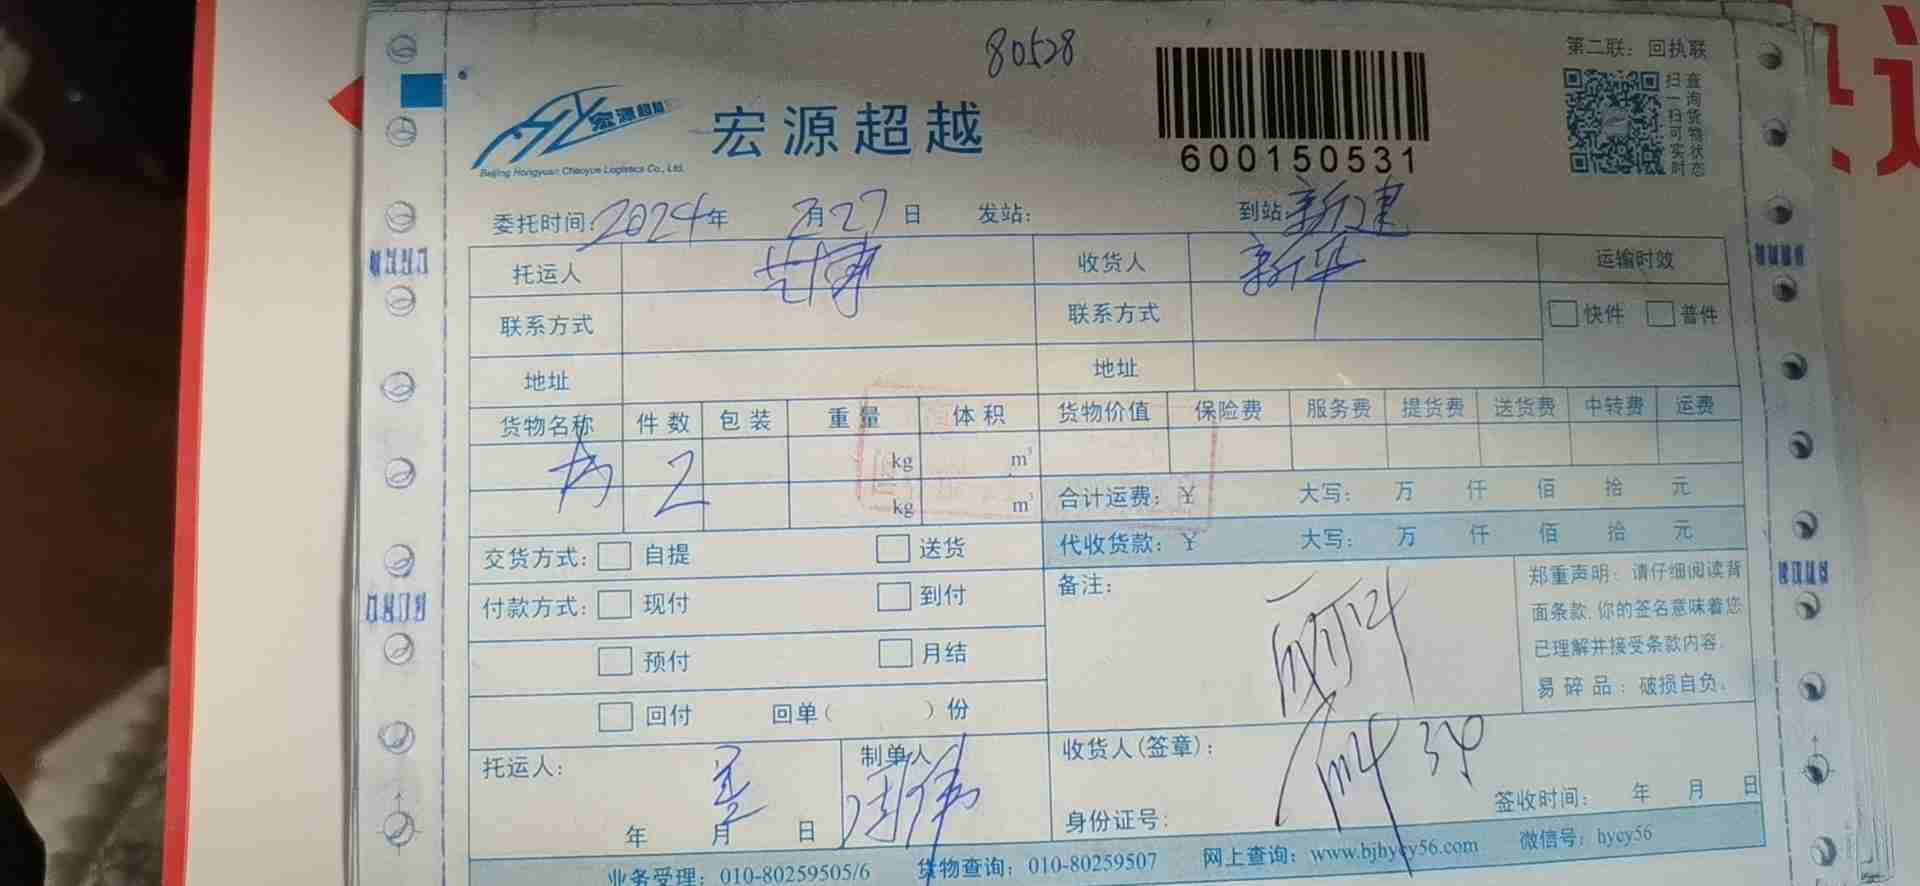 80528
第二联：回执联
宏源超越
宏源超越
Beijing Hongyuan Chaoyue Logistics Co., Ltd.
600150531
扫一扫可实时
查询货物状态
委托时间：2024年 2月27日 发站： 到站：新建
托运人 收货人 新华 运输时效
联系方式 联系方式 快件 普件
地址 地址
货物名称 件数 包装 重量 体积 货物价值 保险费 服务费 提货费 送货费 中转费 运费
2 kg m³
kg m³ 合计运费：¥ 大写： 万 仟 佰 拾 元
交货方式： 自提 送货 代收货款：¥ 大写： 万 仟 佰 拾 元
付款方式： 现付 到付 备注：
预付 月结
回付 回单（ ）份
郑重声明：请仔细阅读背
面条款,你的签名意味着您
已理解并接受条款内容.
易碎品：破损自负.
托运人： 制单人 收货人(签章)：
年 月 日 身份证号： 签收时间： 年 月 日
业务受理：010-80259505/6 货物查询：010-80259507 网上查询：www.bjhycy56.com 微信号：hycy56